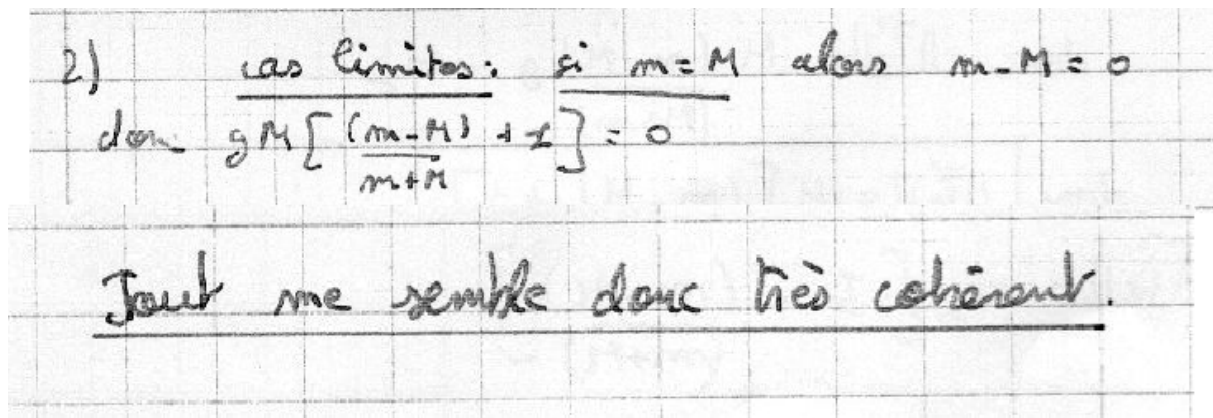 2) cas limites : si m = M alors m - M = 0
donc gM [ (m - M) / m + M + 1 ] = 0
Tout me semble donc très cohérent.